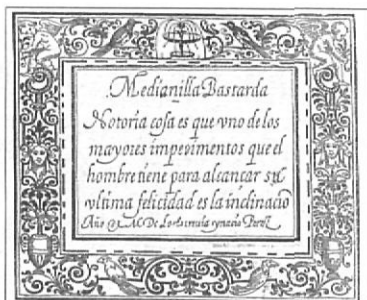 Medianilla Bastarda
Notoria cosa es que vno de los
mayores impedimentos que el
hombre tiene para alcançar su
vltima felicidad es la inclinacio
Año D M.DC Lo formula ygnacio Perez